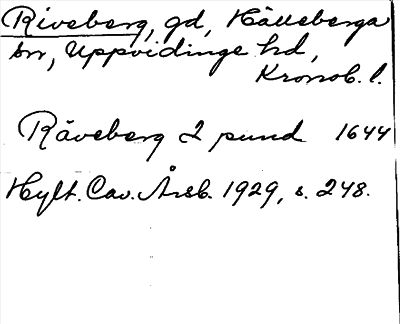 Riveberg, gd, Hälleberga
sn, Uppvidinge hd,
Kronob. l.
Räveberg 2 pund 1644
Hylt. Cav. Årsb. 1929, s. 248.